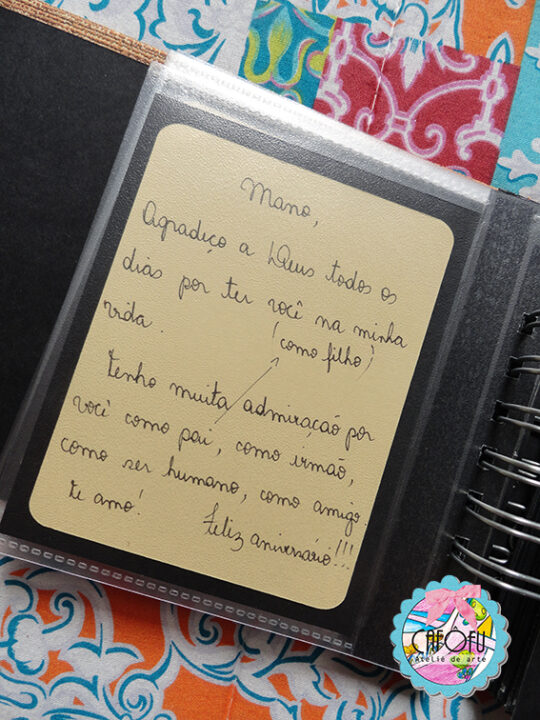 Mano,
Agradiço a Deus todos os
dias por ter você na minha
vida.
(como filho)
Tenho muita admiração por
você como pai, como irmão,
como ser humano, como amigo.
Te amo!
Feliz aniversário!!!
CAFOFU
Ateliê de arte